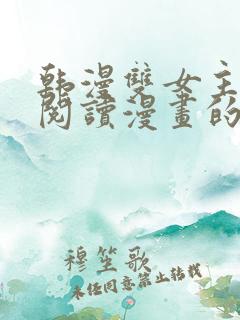 韩漫雙女主
閱讀漫畫的
穆笙歌
未经同意禁止转载